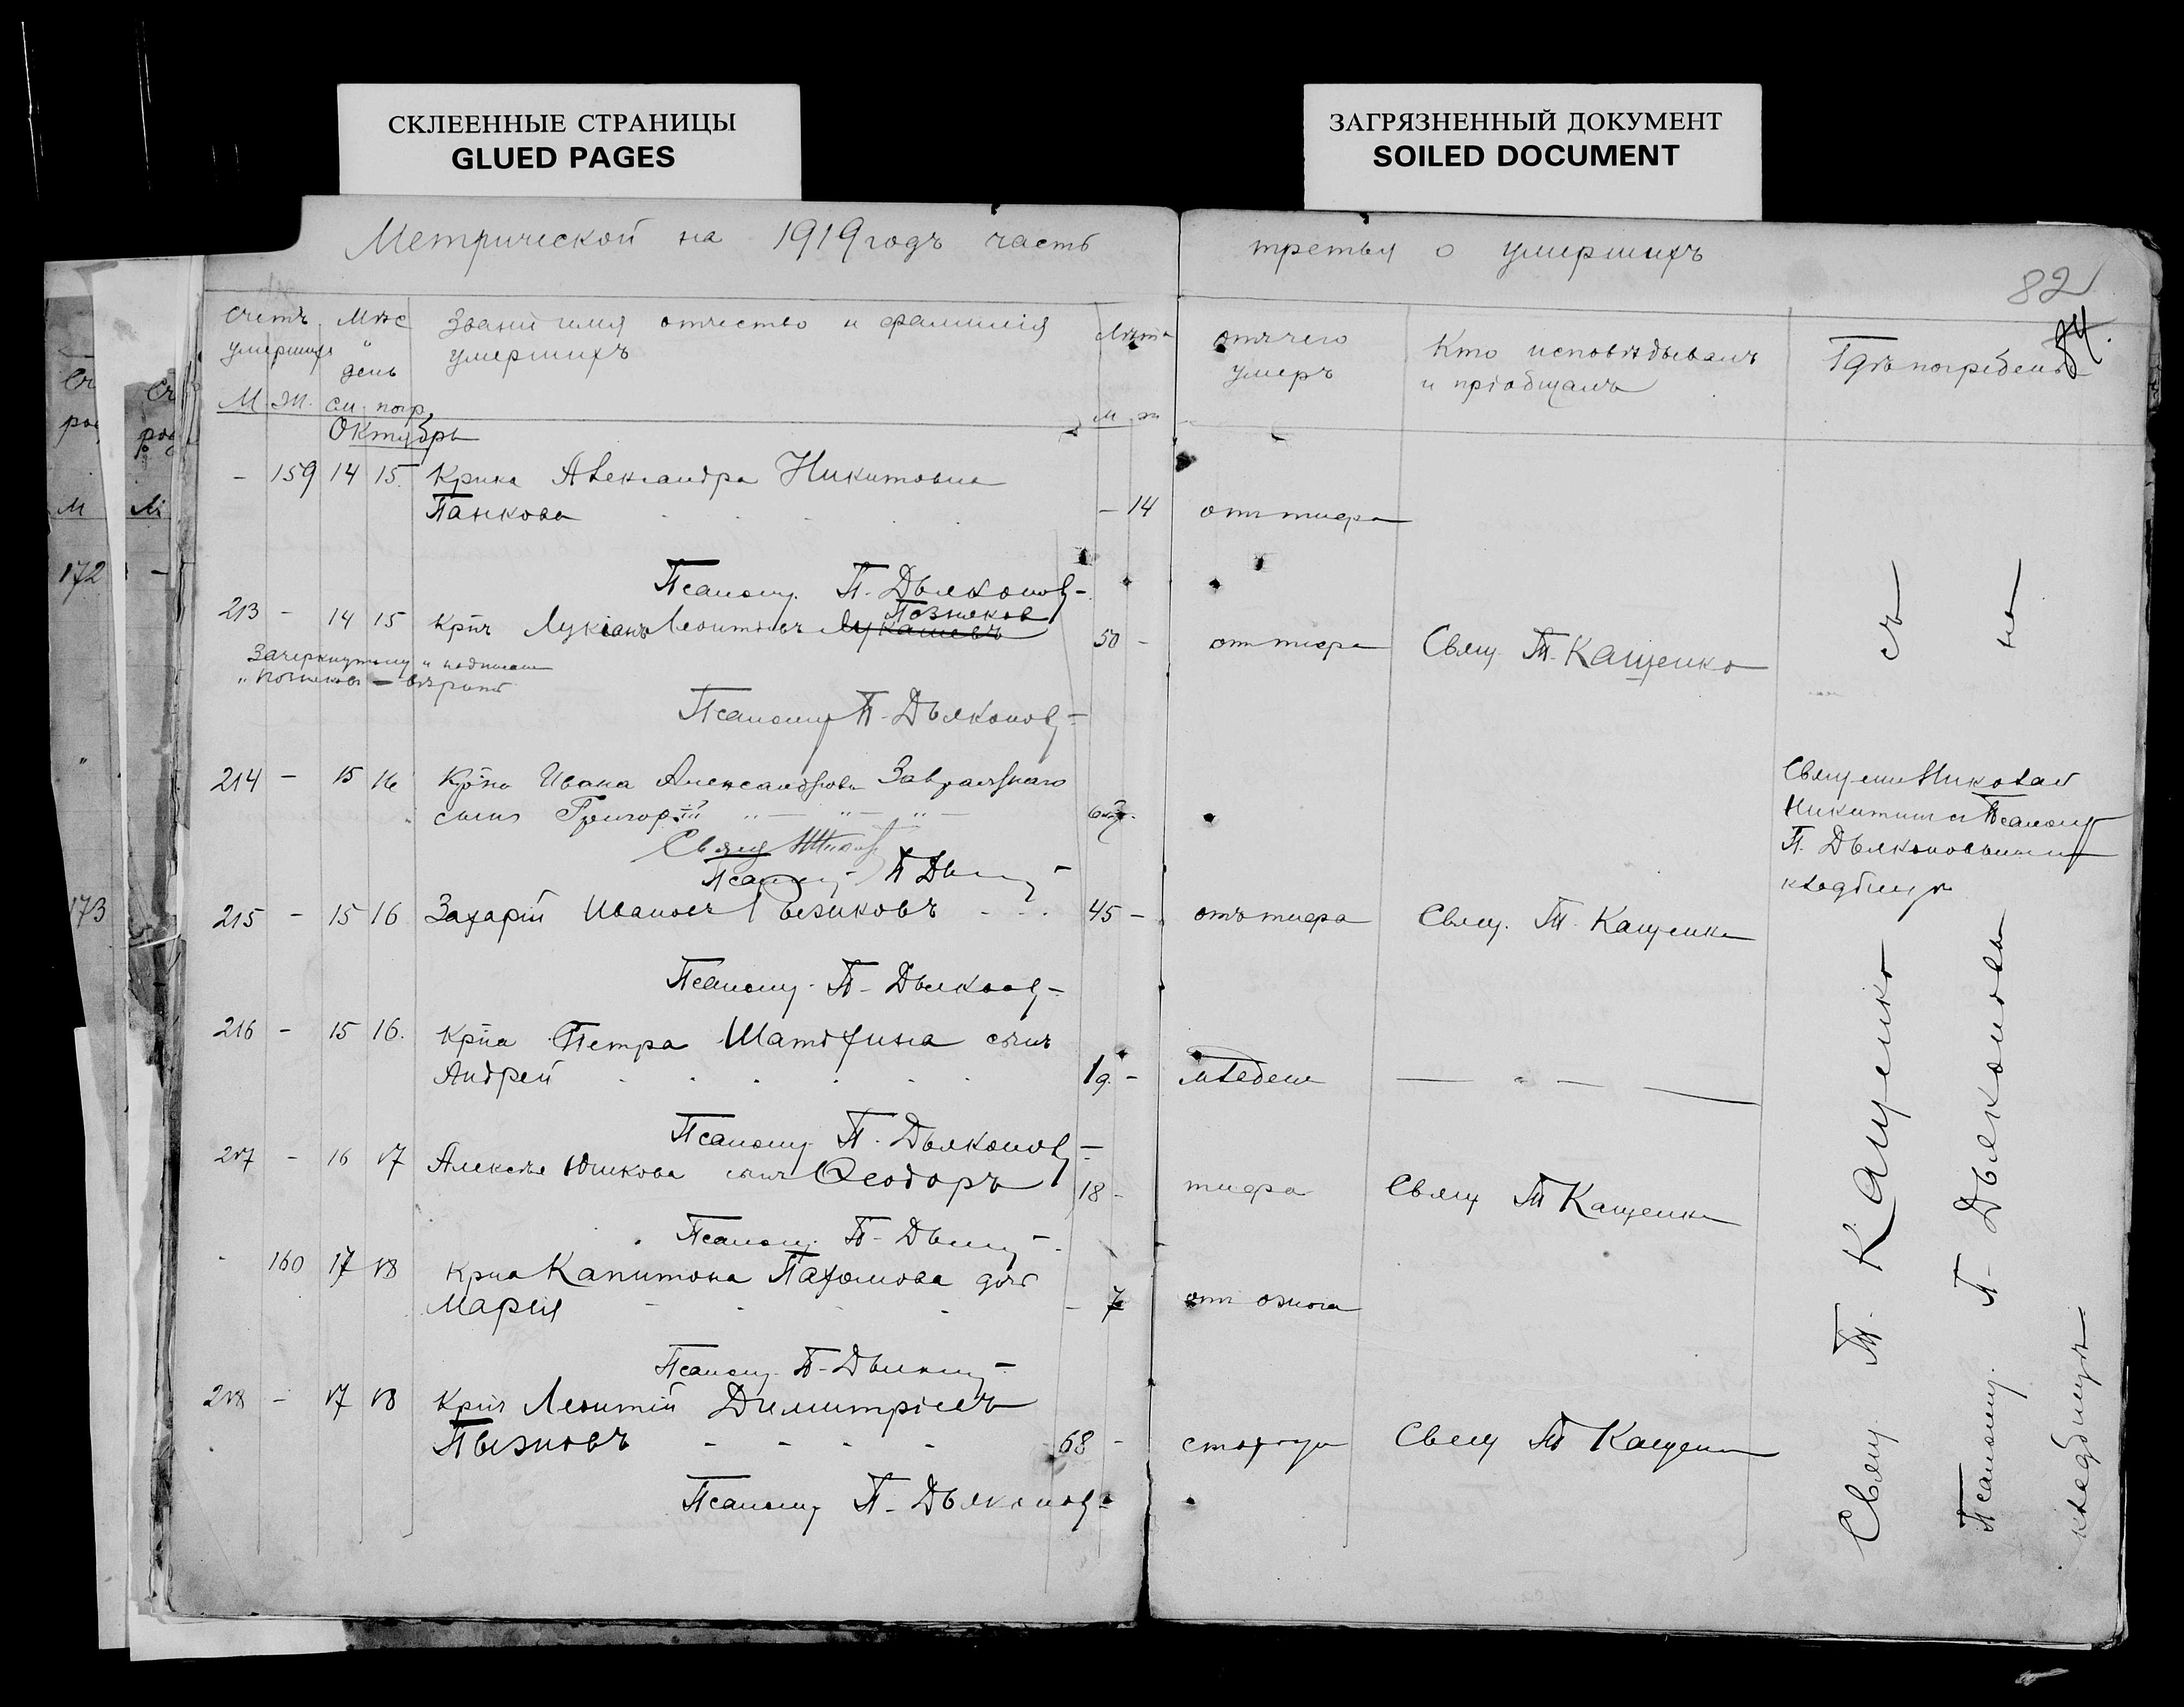 СКЛЕЕННЫЕ СТРАНИЦЫ
GLUED PAGES
ЗАГРЯЗНЕННЫЙ ДОКУМЕНТ
SOILED DOCUMENT
Метрической на 1919 годъ часть
третья о умершихъ
82
счетъ умершихъ
М. Ж.
Мѣс и день
см. погр.
Званіе имя отчество и фамилія
умершихъ
Лѣта
М ж
отъ чего
умеръ
Кто исповѣдывалъ
и пріобщалъ
Гдѣ погребенъ
Октябрь
- 159 14 15 Крнка Александра Никитовна
Панкова - 14 отъ тифа
Псаломщ. П. Дьяконов
213 - 14 15 Крнъ Лукіанъ Леонтіевъ Лукашевъ Позняков 50 - отъ тифа Свящ. Т. Кащенко
Зачеркнутому и надписан
Псаломщ П. Дьяконов
214 - 15 16 Крна Ивана Александрова
сынъ Григорій
Свящ
Псаломщ П Дьяк
Священ Николай
Никитин и Псаломщ
П. Дьяконовым на
кладбищѣ
215 - 15 16 Захарій Ивановъ 45 - отъ тифа Свящ. Т. Кащенко
Псаломщ. П. Дьяконов
216 - 15 16. Крна Петра Шатохина сынъ
Андрей 1 г. -
Псаломщ. П. Дьяконов
217 - 16 17 Алексѣя Юшкова сынъ Ѳеодоръ 18 - тифа Свящ Т Кащенко
Псаломщ. П. Дьяк
- 160 17 18 Крна Капитона Пахомова дочь
Марія - 7 отъ ожога
Псаломщ. П. Дьякон
218 - 17 18 Крнъ Леонтій Димитріевъ
68 - старости Свящ Т Кащенко
Псаломщ П. Дьяконов
Свящ Т. Кащенко съ
Псаломщ. П. Дьяконовым на
кладбищѣ
172
173